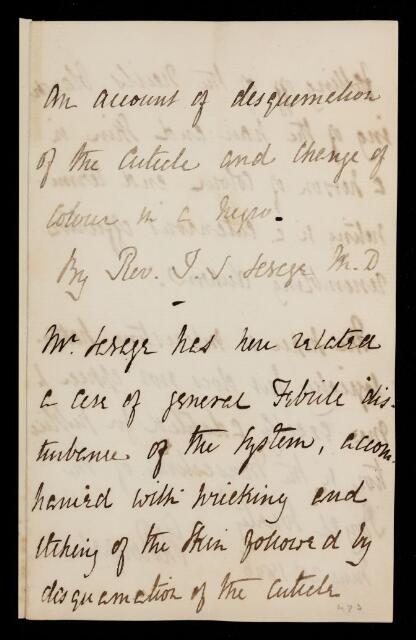 An account of desquamation
of the Cuticle and change of
colour in a Negro.
By Rev. T. S. Savage M.D
Mr. Savage has here related
a case of general Febrile dis-
turbance of the System, accom-
panied with pricking and
itching of the Skin followed by
disquamation of the Cuticle
473